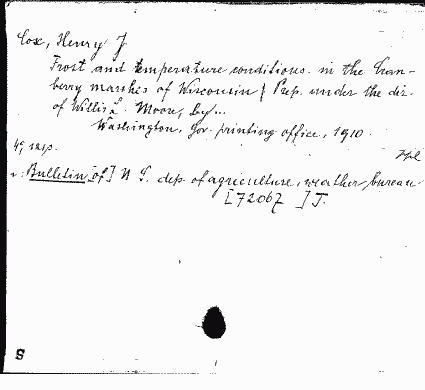 Cox, Henry J
Frost and temperature conditions in the Cran-
berry marshes of Wisconsin / Prep. under the dir.
of Willis L. Moore, by...
Washington, Gov. printing office, 1910.
4°, maps.
Bulletin [of] U S. dep. of agriculture, weather bureau
[72067 ] J.
S